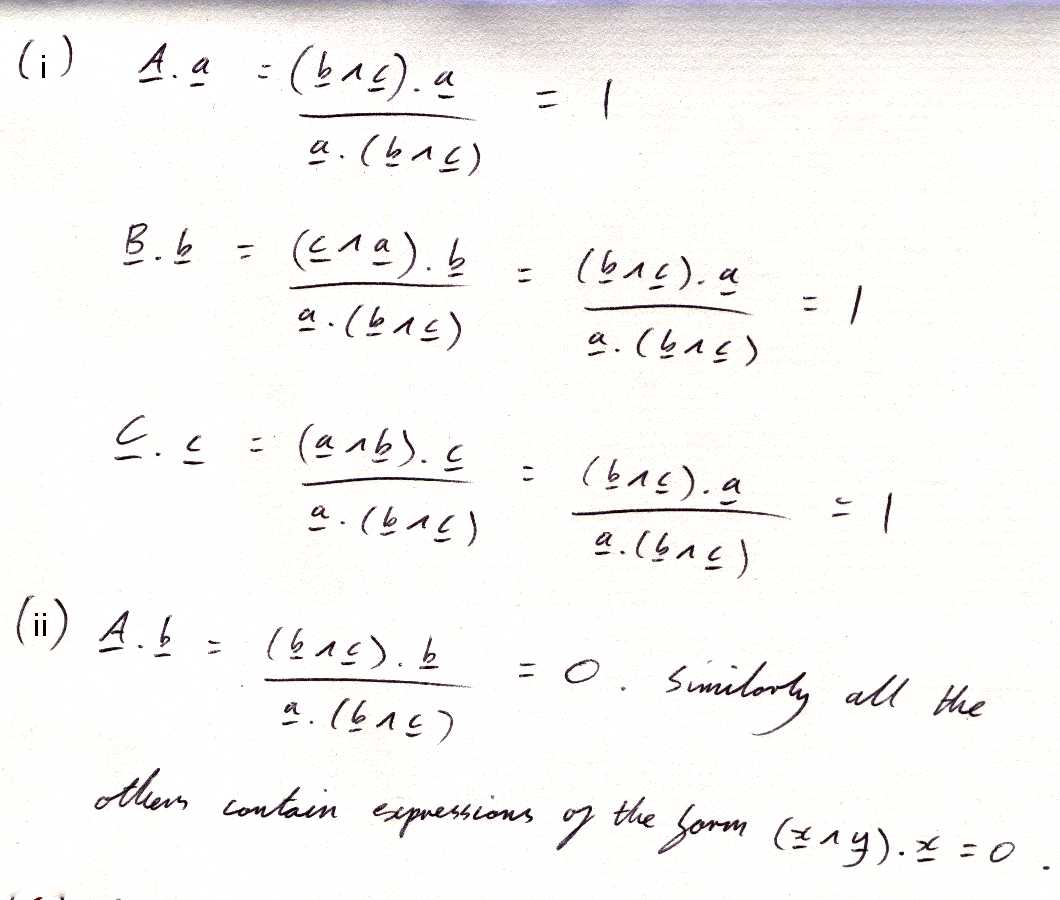 (i) A . a = (b ∧ c) . a / a . (b ∧ c) = 1
B . b = (c ∧ a) . b / a . (b ∧ c) = (b ∧ c) . a / a . (b ∧ c) = 1
C . c = (a ∧ b) . c / a . (b ∧ c) = (b ∧ c) . a / a . (b ∧ c) = 1
(ii) A . b = (b ∧ c) . b / a . (b ∧ c) = 0 . Similarly all the
others contain expressions of the form (x ∧ y) . x = 0 .